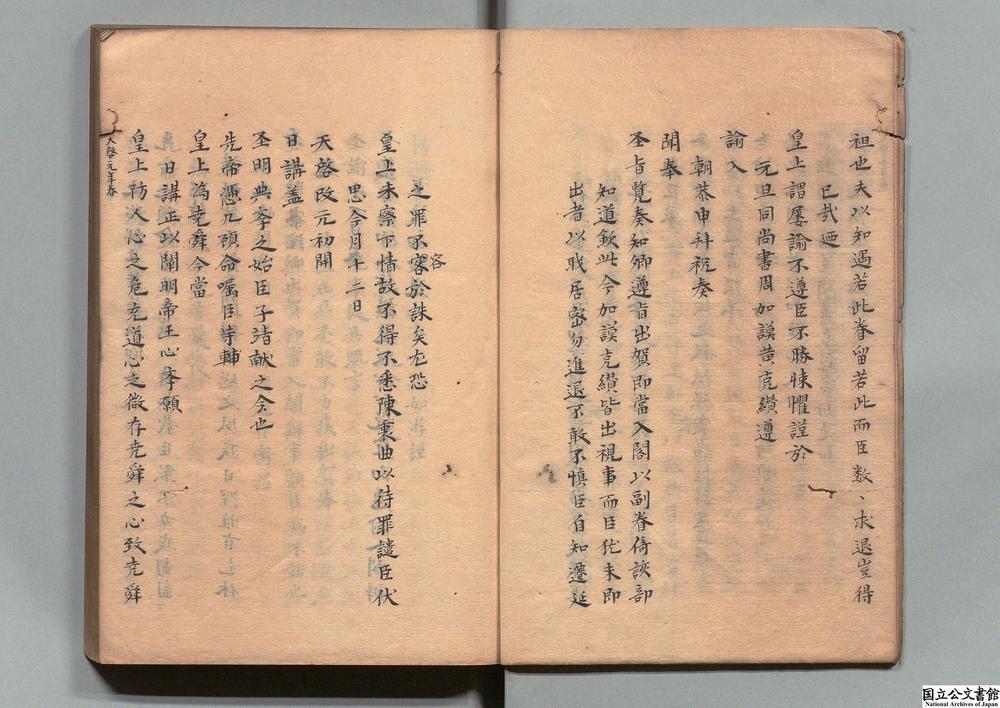 祖也夫以知遇若此眷留若此而臣数、求退豈得
已哉廼
皇上謂屡諭不遵臣不勝悚懼謹於
元旦同尚書周加謨黄克纉遵
諭入
朝恭申拜祝奏
聞奉
圣旨覽奏知卿遵旨出賀即當入閣以副眷倚該部
知道欽此今加謨克纉皆出視事而臣犹未即
出者以戝居密勿進退不敢不慎臣自知遷延
之罪不容於誅矣尤恐
容
皇上未察下情故不得不悉陳衷曲以待罪譴臣伏
思今月十二日
天啓改元初開
日講盖
圣明典孝之始臣子靖献之会也
先帝憑几頋命嘱臣等輔
皇上為尭舜今當
日講正以闡明帝王心孝願
皇上防人心之危尭道心之微存尭舜之心致尭舜
天啓元年春
国立公文書館
National Archives of Japan